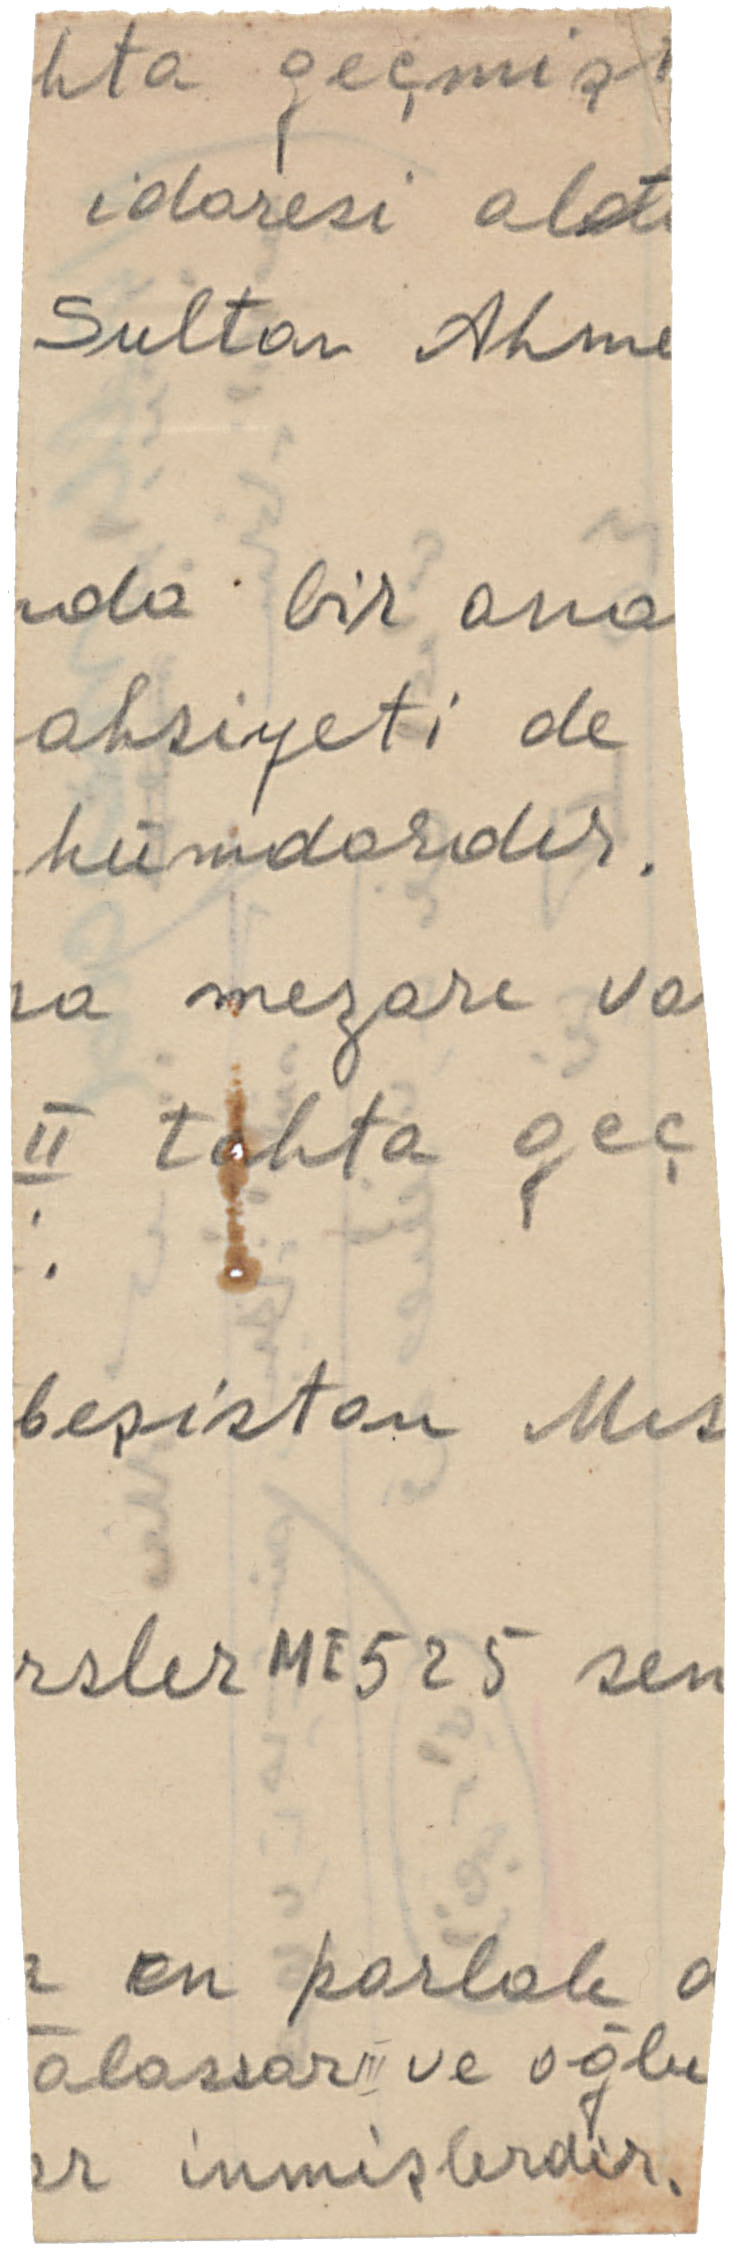 hta geçmişt
idaresi altı
Sultan Ahme
nda bir ana
ahsiyeti de
kümdarıdır.
ra mezarı va
II tahta geç
beşistan Mıs
rsler ME 525 sen
en parlak a
alassar III ve oğlu
ar inmişlerdir.